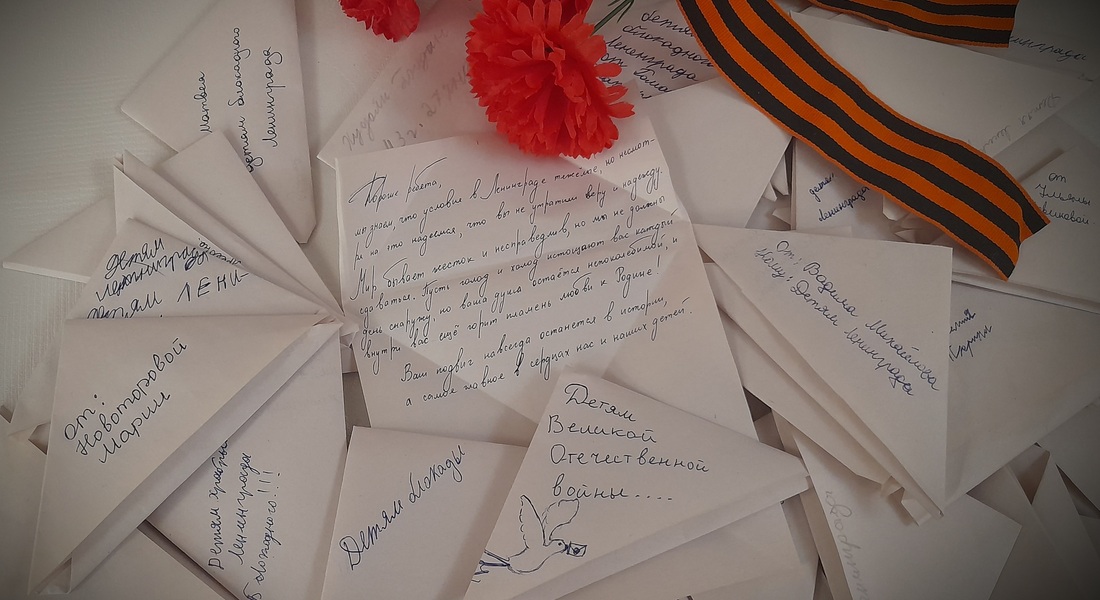 Матвея
детям блокадного
Ленинграда
детям
блокадной
Ленинграда
от
Ленинграда
43г. 27
Дорогие ребята,
мы знаем, что условия в Ленинграде тяжёлые, но несмот-
ря на это надеемся, что вы не утратили веру и надежду.
Мир бывает жесток и несправедлив, но мы не должны
сдаваться. Пусть голод и холод истощают вас каждый
день снаружи, но ваша душа остаётся непоколебимой, и
внутри вас ещё горит пламень любви к Родине!
Ваш подвиг навсегда останется в истории,
а самое главное в сердцах нас и наших детей.
детям
Ленинграда
от
Ульяны
От: Вадима Михайлова
Кому: Детям Ленинграда
Детям
Ленинграда
детям ЛЕНИ-
От:
Новоторовой
Марии
Детям храбрым
Ленинграда
блокадного!!!
Детям блокады
Детям
Великой
Отечественной
войны....